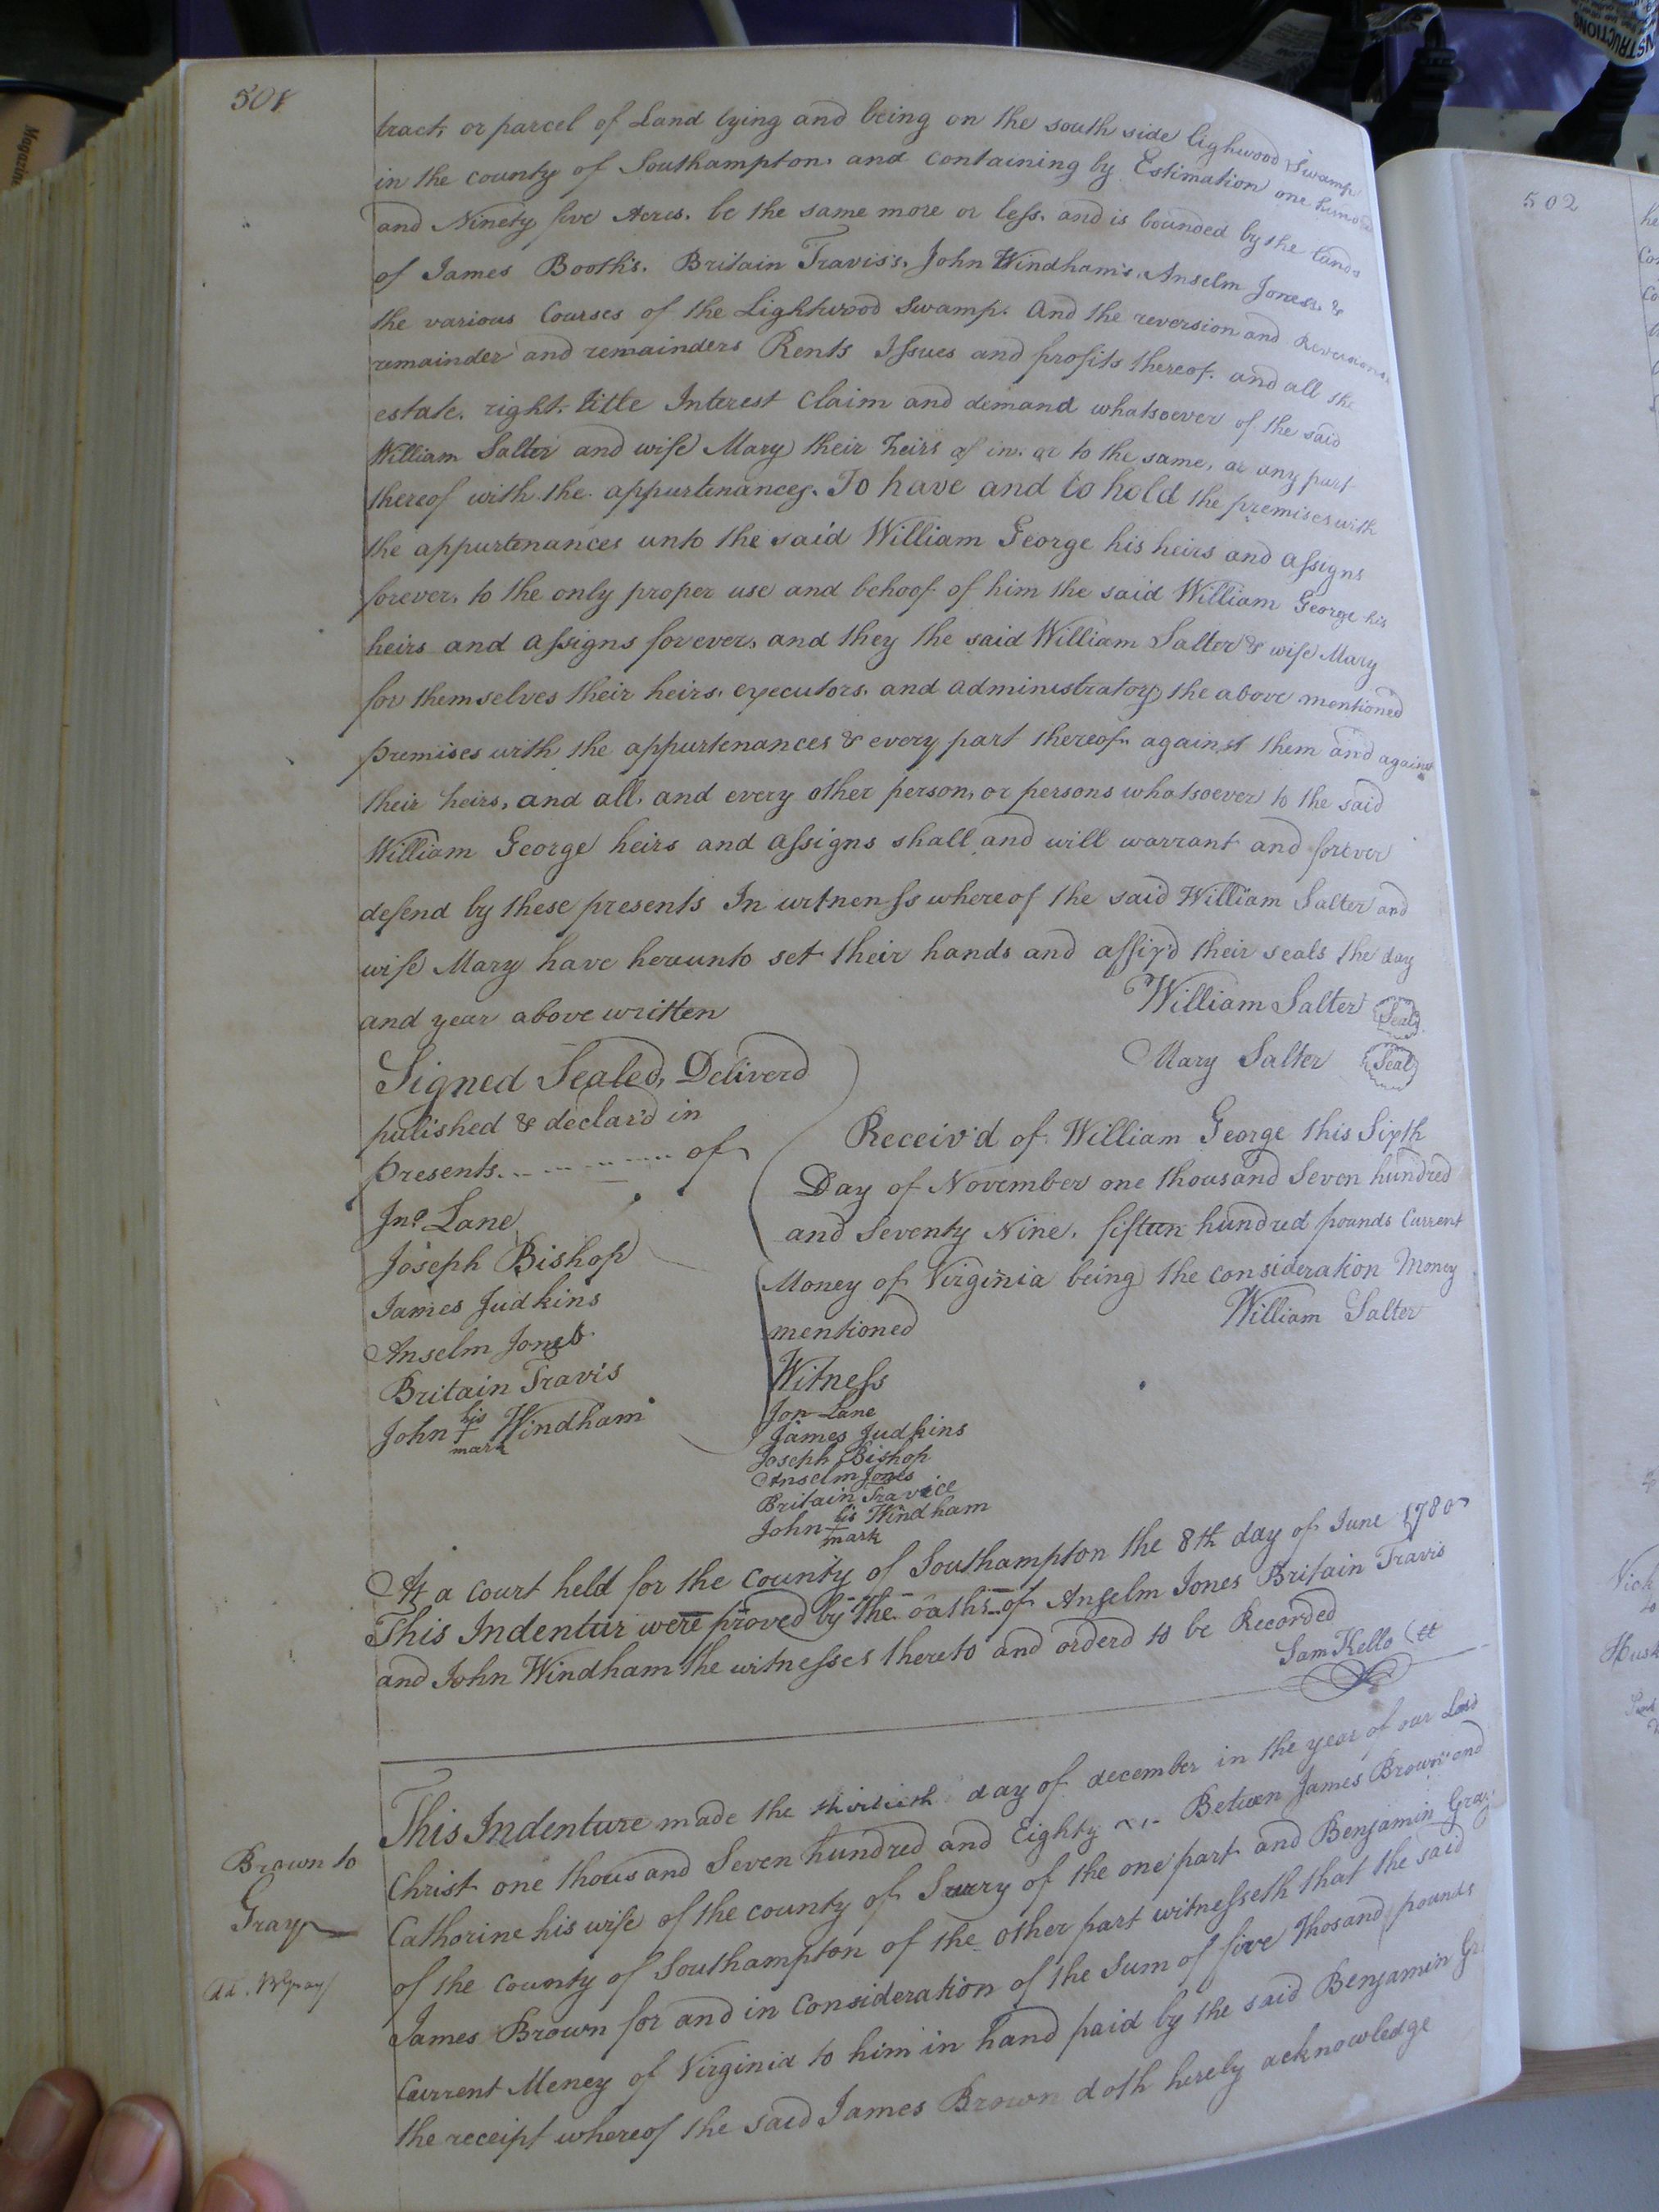 501
tract, or parcel of Land lying and being on the south side lighwood Swamp
in the county of Southampton, and containing by Estimation one hund
and Ninety five Acres. be the same more or less. and is bounded by the Lands
of James Booth's. Britain Travis's, John Windham's, Anselm Jones's &
the various Courses of the Lightwood Swamp. And the reversion and Reversions
remainder and remainders Rents Issues and profits thereof. and all the
estate. right. title Interest Claim and demand whatsoever of the said
William Salter and wife Mary their heirs of in. or to the same, or any part
thereof with the appurtenances. To have and to hold the premises with
the appurtenances unto the said William George his heirs and assigns
forever. to the only proper use and behoof of him the said William George his
heirs and assigns forever, and they the said William Salter & wife Mary
for themselves their heirs. executors. and administrators, the above mentioned
premises with the appurtenances & every part thereof against them and against
their heirs, and all, and every other person, or persons whatsoever to the said
William George heirs and assigns shall and will warrant and forever
defend by these presents In witnenss whereof the said William Salter and
wife Mary have hereunto set their hands and affix'd their seals the day
and year above written
William Salter Seal
Mary Salter Seal
Signed Sealed, Deliverd
pulished & declar'd in
presents. of
Jno. Lane
Joseph Bishop
James Judkins
Anselm Jones
Britain Travis
John his Windham
mark
Receiv'd of William George this Sixth
Day of November one thousand Seven hundred
and Seventy Nine, fifteen hundred pounds Current
Money of Virginia being the consideration Money
mentioned William Salter
Witness
Jon Lane
James Judkins
Joseph Bishop
Anselm Jones
Britain Travice
John his Windham
mark
At a court held for the county of Southampton the 8th day of June 1780
This Indentur were proved by the oaths of Anselm Jones Britain Travis
and John Windham the witnesses thereto and orderd to be Recorded
Sam Kello
Brown to
Gray
This Indenture made the thirtieth day of december in the year of our Lord
Christ one thousand Seven hundred and Eighty Between James Brown and
Cathorine his wife of the county of Surry of the one part and Benjamin Gray
of the county of Southampton of the other part witnesseth that the said
James Brown for and in Consideration of the Sum of five thosand pounds
Current Meney of Virginia to him in hand paid by the said Benjamin Gr
the receipt whereof the said James Brown doth hereby acknowledge
502